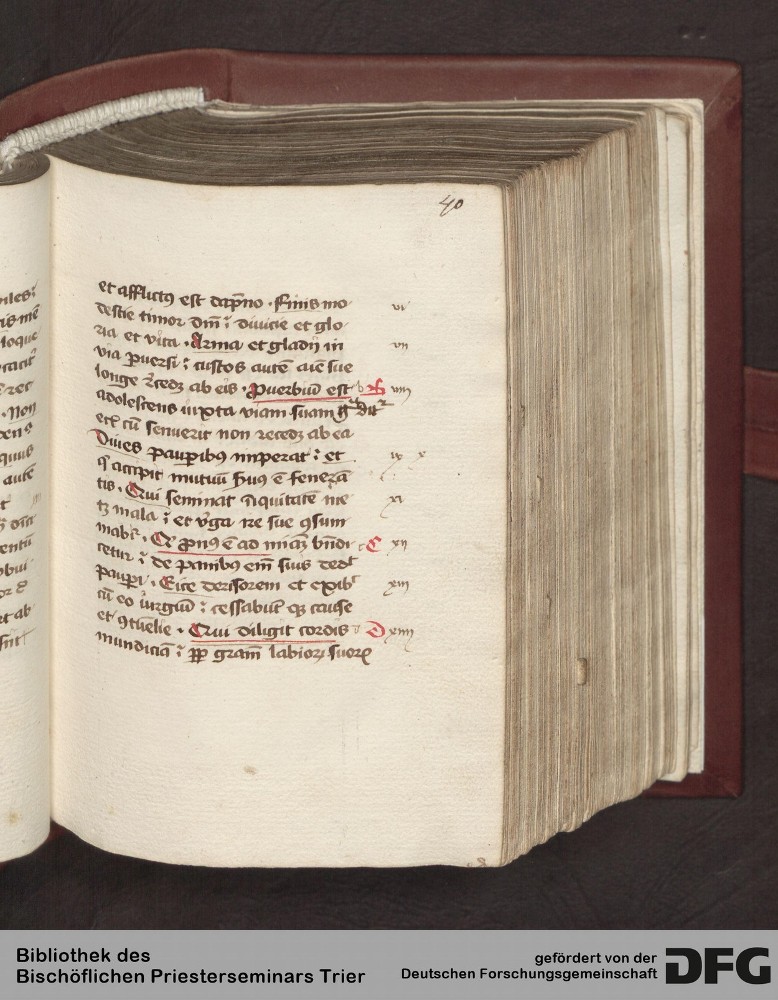 40
et afflictꝰ est dāpno · Finis mo
destie timor dn̄i ⁖ diuicie et glo
ria et vita · Arma et gladij in
via puersi ⁖ custos autē aīe sue
longe recedꝫ ab eis · Puerbiū est
adolescens iuxta viam suam
etī cū senuerit non recedꝫ ab ea
Diues pauꝑibꝰ imperat ⁖ et
q̇ accipit mutuū ẜuꝰ ē fenerā
tis · Qui seminat īiquitatē me
tꝫ mala ⁖ et v̇ga ire sue ꝯsum
mabr̄ · Qi ꝓnꝰ ē ad mīaꝫ bn̄di
cetur ⁖ de panibꝰ em̄ suis dedt
pauꝑi · Eice derisorem et exibt
cū eo iurgiū ⁖ cessabūt qꝫ cause
et ꝯtūelie · Qui diligit cordis
mundiciā ⁖ ꝓp grām̄ labioꝝ suoꝝ
vi
vii
viii
ix x
xi
C xii
xiii
D xiiii
Bibliothek des
Bischöflichen Priesterseminars Trier
gefördert von der
Deutschen Forschungsgemeinschaft
DFG